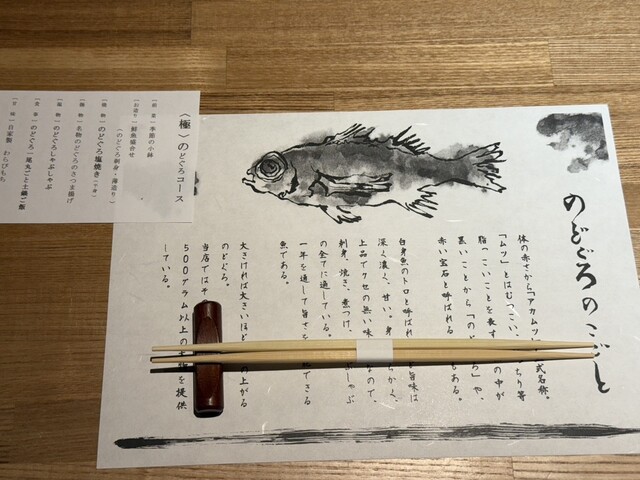 のどぐろのこと
体の赤さから「アカムツ
式名称。
「ムツ」とはむつこい、
ちり等
脂っこいことを表す
の中が
黒いことから「のど
ろ」や、
赤い宝石と呼ばれる
もある。
白身魚のトロと呼ばれ
旨味は
深く濃く、甘い。身
らかく、
上品でクセの無い味
なので、
刺身、焼き、煮つけ、
ぶしゃぶ
の全てに適している。
一年を通して旨さを
能できる
魚である。
大きければ大きいほど
の上がる
のどぐろ。
当店では
500グラム以上の
を提供
している。
〈極〉のどぐろコース
季節の小鉢
お造り
鮮魚盛合せ
(のどぐろ刺身・薄造り)
のどぐろ塩焼き
名物のどぐろのさつま揚げ
のどぐろしゃぶしゃぶ
のどぐろ一尾丸ごと土鍋ご飯
自家製 わらびもち